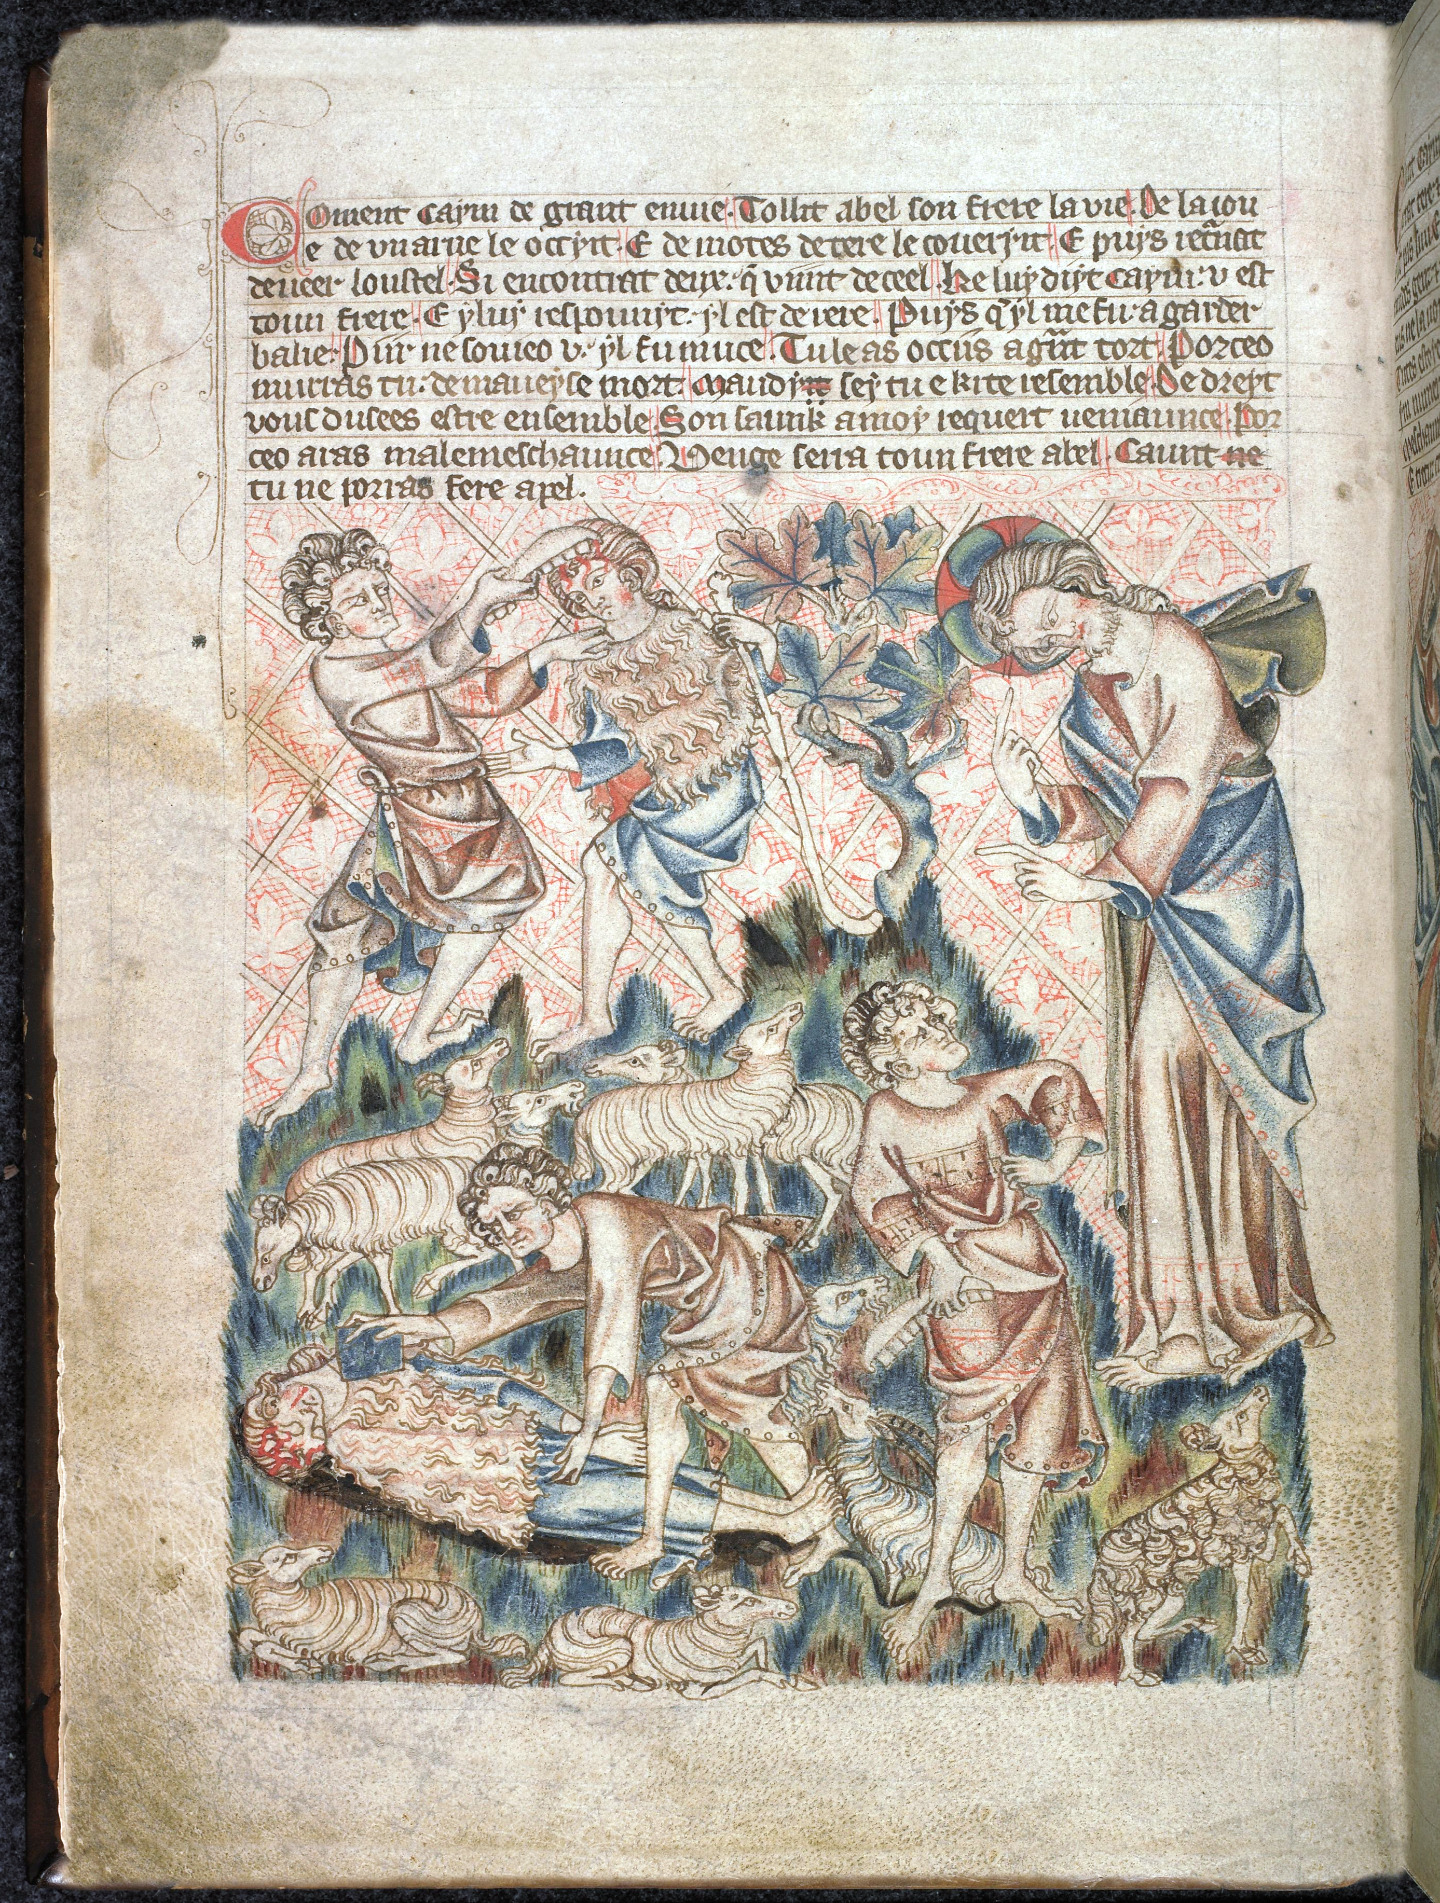 Coment caym de graunt enuie. Tollit abel son frere la vie. De la iou
e de vn asne le occyt. E de motes de tere le coueryt. E puys retᵃnat
deueer loustel. Si encontrat deux. q̄ vint de ceel. Ke luy dyt caym. v est
toun frere. E yluy respounyt. yl est derere. Puys q̄ yl me fu. a garder
balie. Pur ne soueo v. yl fu muce. Tu le as occiis a gᵃnt tort. Porceo
murras tu. de maueyse mort. Maudyte sey tu e kite resemble. De dreyt
vous dusees estre ensemble. Son saunk a moy requert ueniaunce. Por
ceo aras male meschaunce. Venge serra toun frere abel. Caunt ne
tu ne porras fere apel.